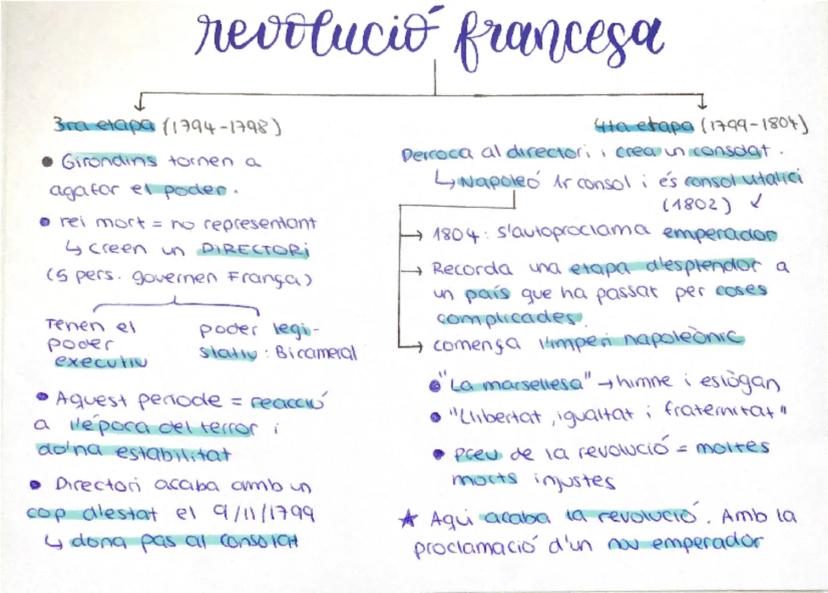 revolució francesa
3ra etapa (1794-1798)
• Girondins tornen a
agafar el poder.
• rei mort = no representant
↳ creen un DIRECTORI
(5 pers. governen França)
Tenen el
poder
executiu
poder legi-
slatiu: Bicameral
• Aquest període = reacció
a l'època del terror i
dóna estabilitat
• Directori acaba amb un
cop d'estat el 9/11/1799
↳ dona pas al consolat
4ta etapa (1799-1804)
Derroca al directori i crea un consolat.
↳ Napoleó 1r consol i és consol vitalici
(1802) ↙
→ 1804: s'autoproclama emperador
→ Recorda una etapa d'esplendor a
un país que ha passat per coses
complicades.
→ comença l'imperi napoleònic
• "La marsellesa" → himne i eslògan
• "Llibertat, igualtat i fraternitat"
• Preu de la revolució = moltes
morts injustes
★ Aquí acaba la revolució. Amb la
proclamació d'un nou emperador